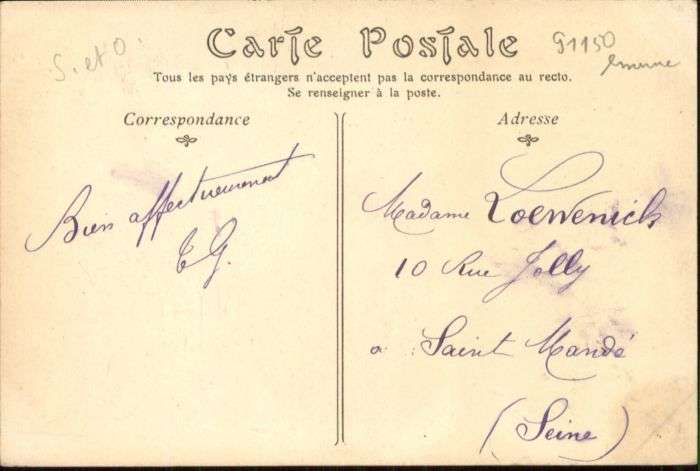 S. et O.
Carte Postale
91150
Tous les pays étrangers n'acceptent pas la correspondance au recto.
Se renseigner à la poste.
Correspondance
Bien affectueusement
E G.
Adresse
Madame Loewenick
10 Rue Jolly
a Saint Mandé
(Seine)